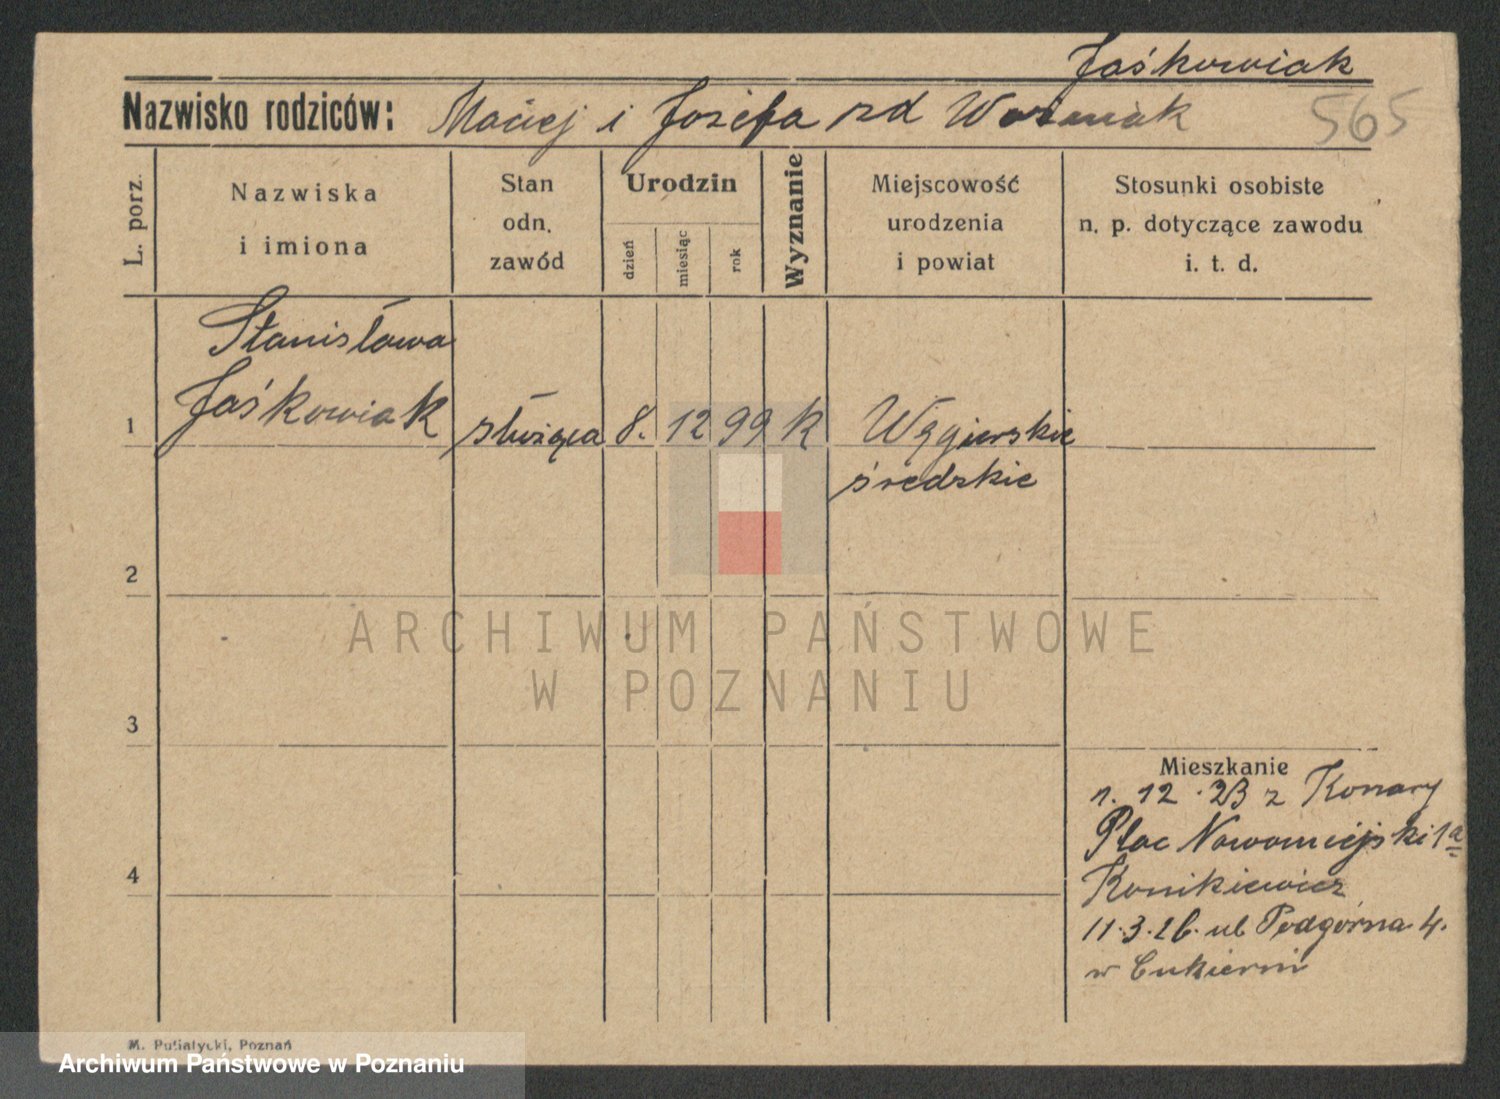 Jaśkowiak
Nazwisko rodziców: Maciej i Józefa zd Woźniak 565
L. porz.
Nazwiska
i imiona
Stan
odn.
zawód
Urodzin
dzień
miesiąc
rok
Wyznanie
Miejscowość
urodzenia
i powiat
Stosunki osobiste
n. p. dotyczące zawodu
i. t. d.
Stanisława
1 Jaśkowiak służąca 8. 12 99 k Węgierskie
średzkie
2
3
4
Mieszkanie
1. 12. 23 z Konary
Plac Nowomiejski 1a
Konikiewicz
11.3.26. ul Podgórna 4.
w Cukierni
ARCHIWUM PAŃSTWOWE
W POZNANIU
M. Putiatycki, Poznań
Archiwum Państwowe w Poznaniu